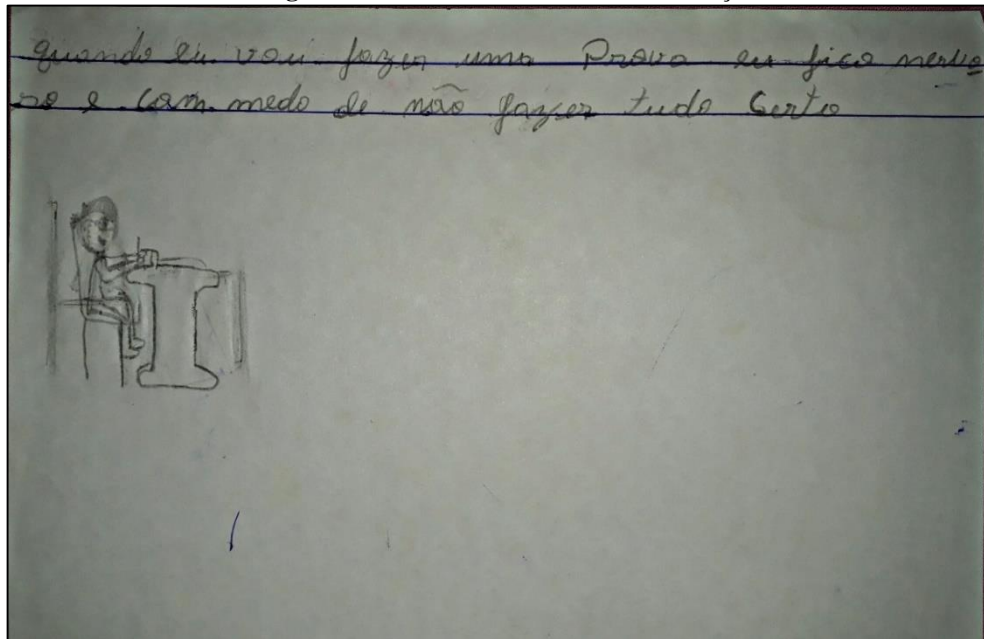 quando eu vou fazer uma Prova eu fico nervo
so e com medo de não fazer tudo Certo